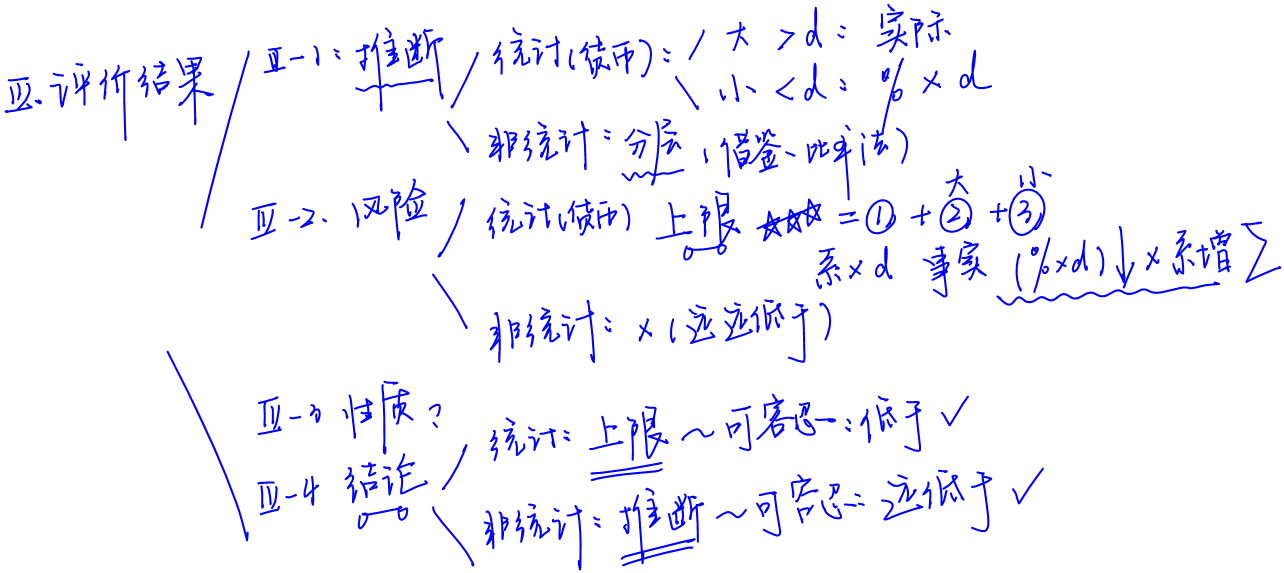 Ⅲ. 评价结果
Ⅲ-1: 推断
统计(货币): 大 >d: 实际
小 <d: % × d
非统计: 分层 (借鉴、比率法)
Ⅲ-2. 风险
统计(货币) 上限 ☆☆☆ = ① + ② + ③
大 小
系×d 事实 (%×d)↓×系增 Σ
非统计: × (远远低于)
Ⅲ-3 性质?
Ⅲ-4 结论
统计: 上限 ~ 可容忍: 低于 ✓
非统计: 推断 ~ 可容忍: 远低于 ✓